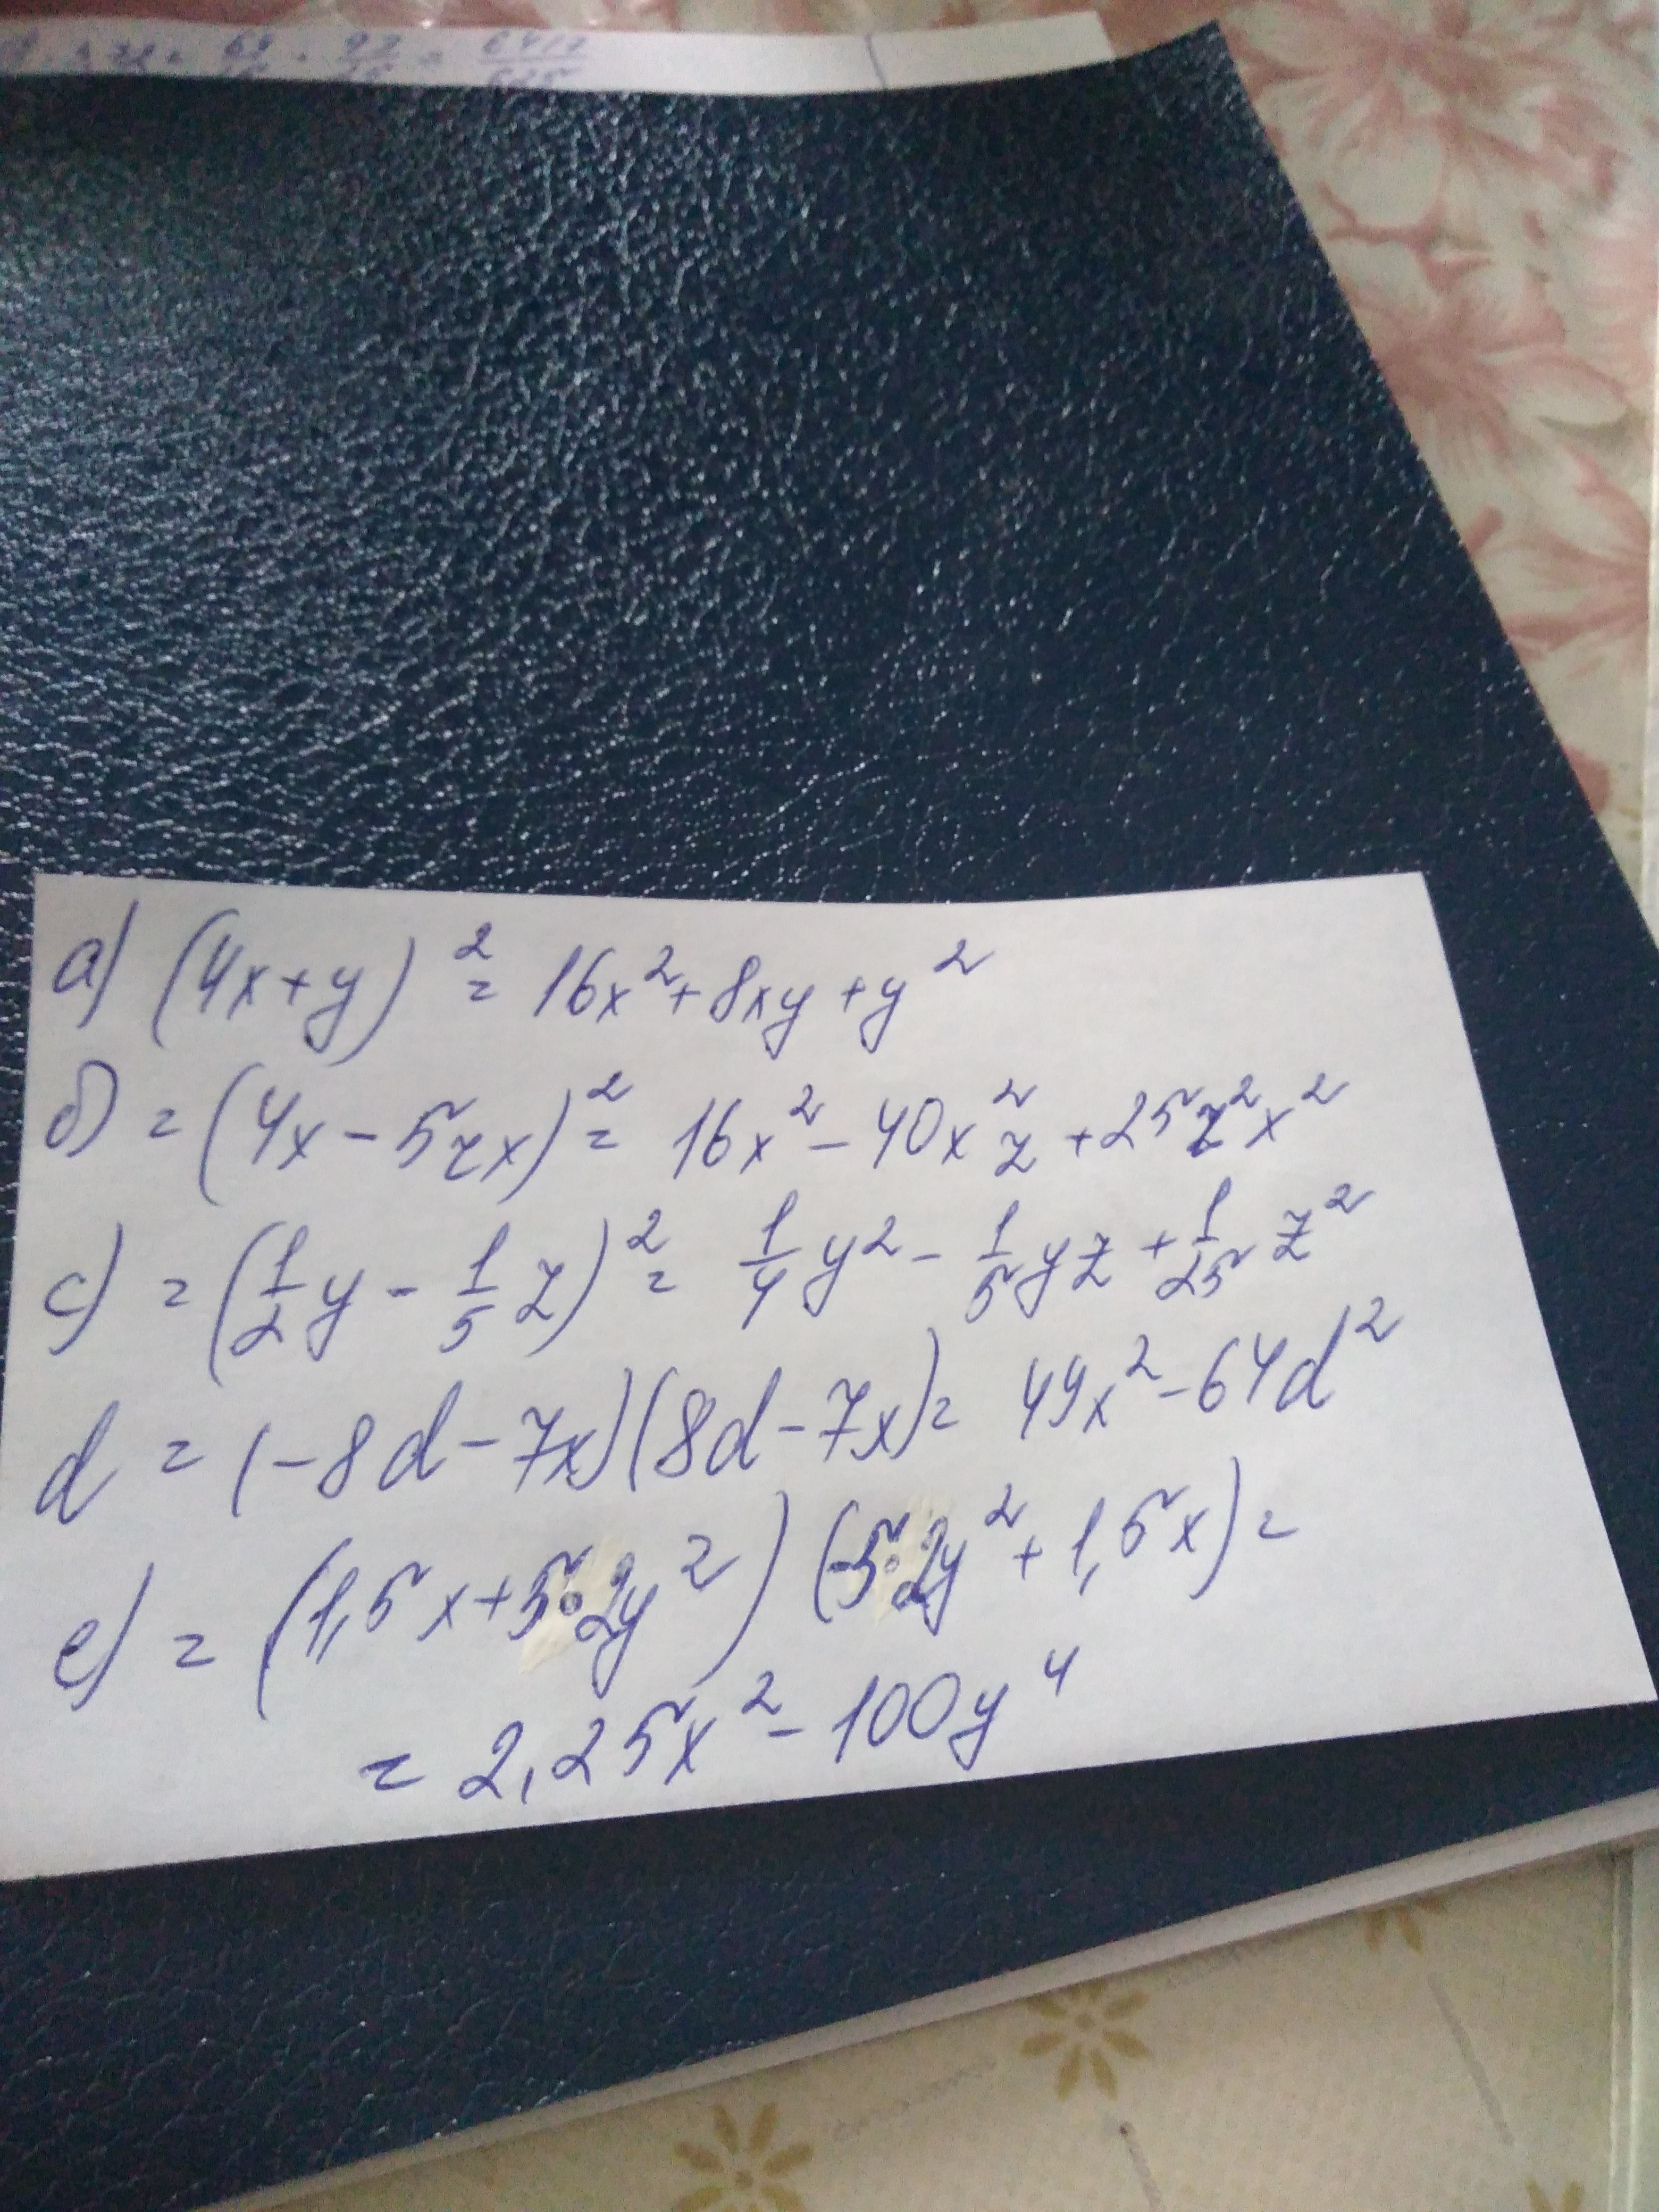 а) (4x+y)² = 16x²+8xy+y²
б) = (4x-5zx)² = 16x²-40x²z+25z²x²
c) = (1/2y-1/5z)² = 1/4y²-1/5yz+1/25z²
d = (-8d-7x)(8d-7x)= 49x²-64d²
e) = (1,5x+5·2y²)(-5·2y²+1,5x)=
= 2,25x²-100y⁴